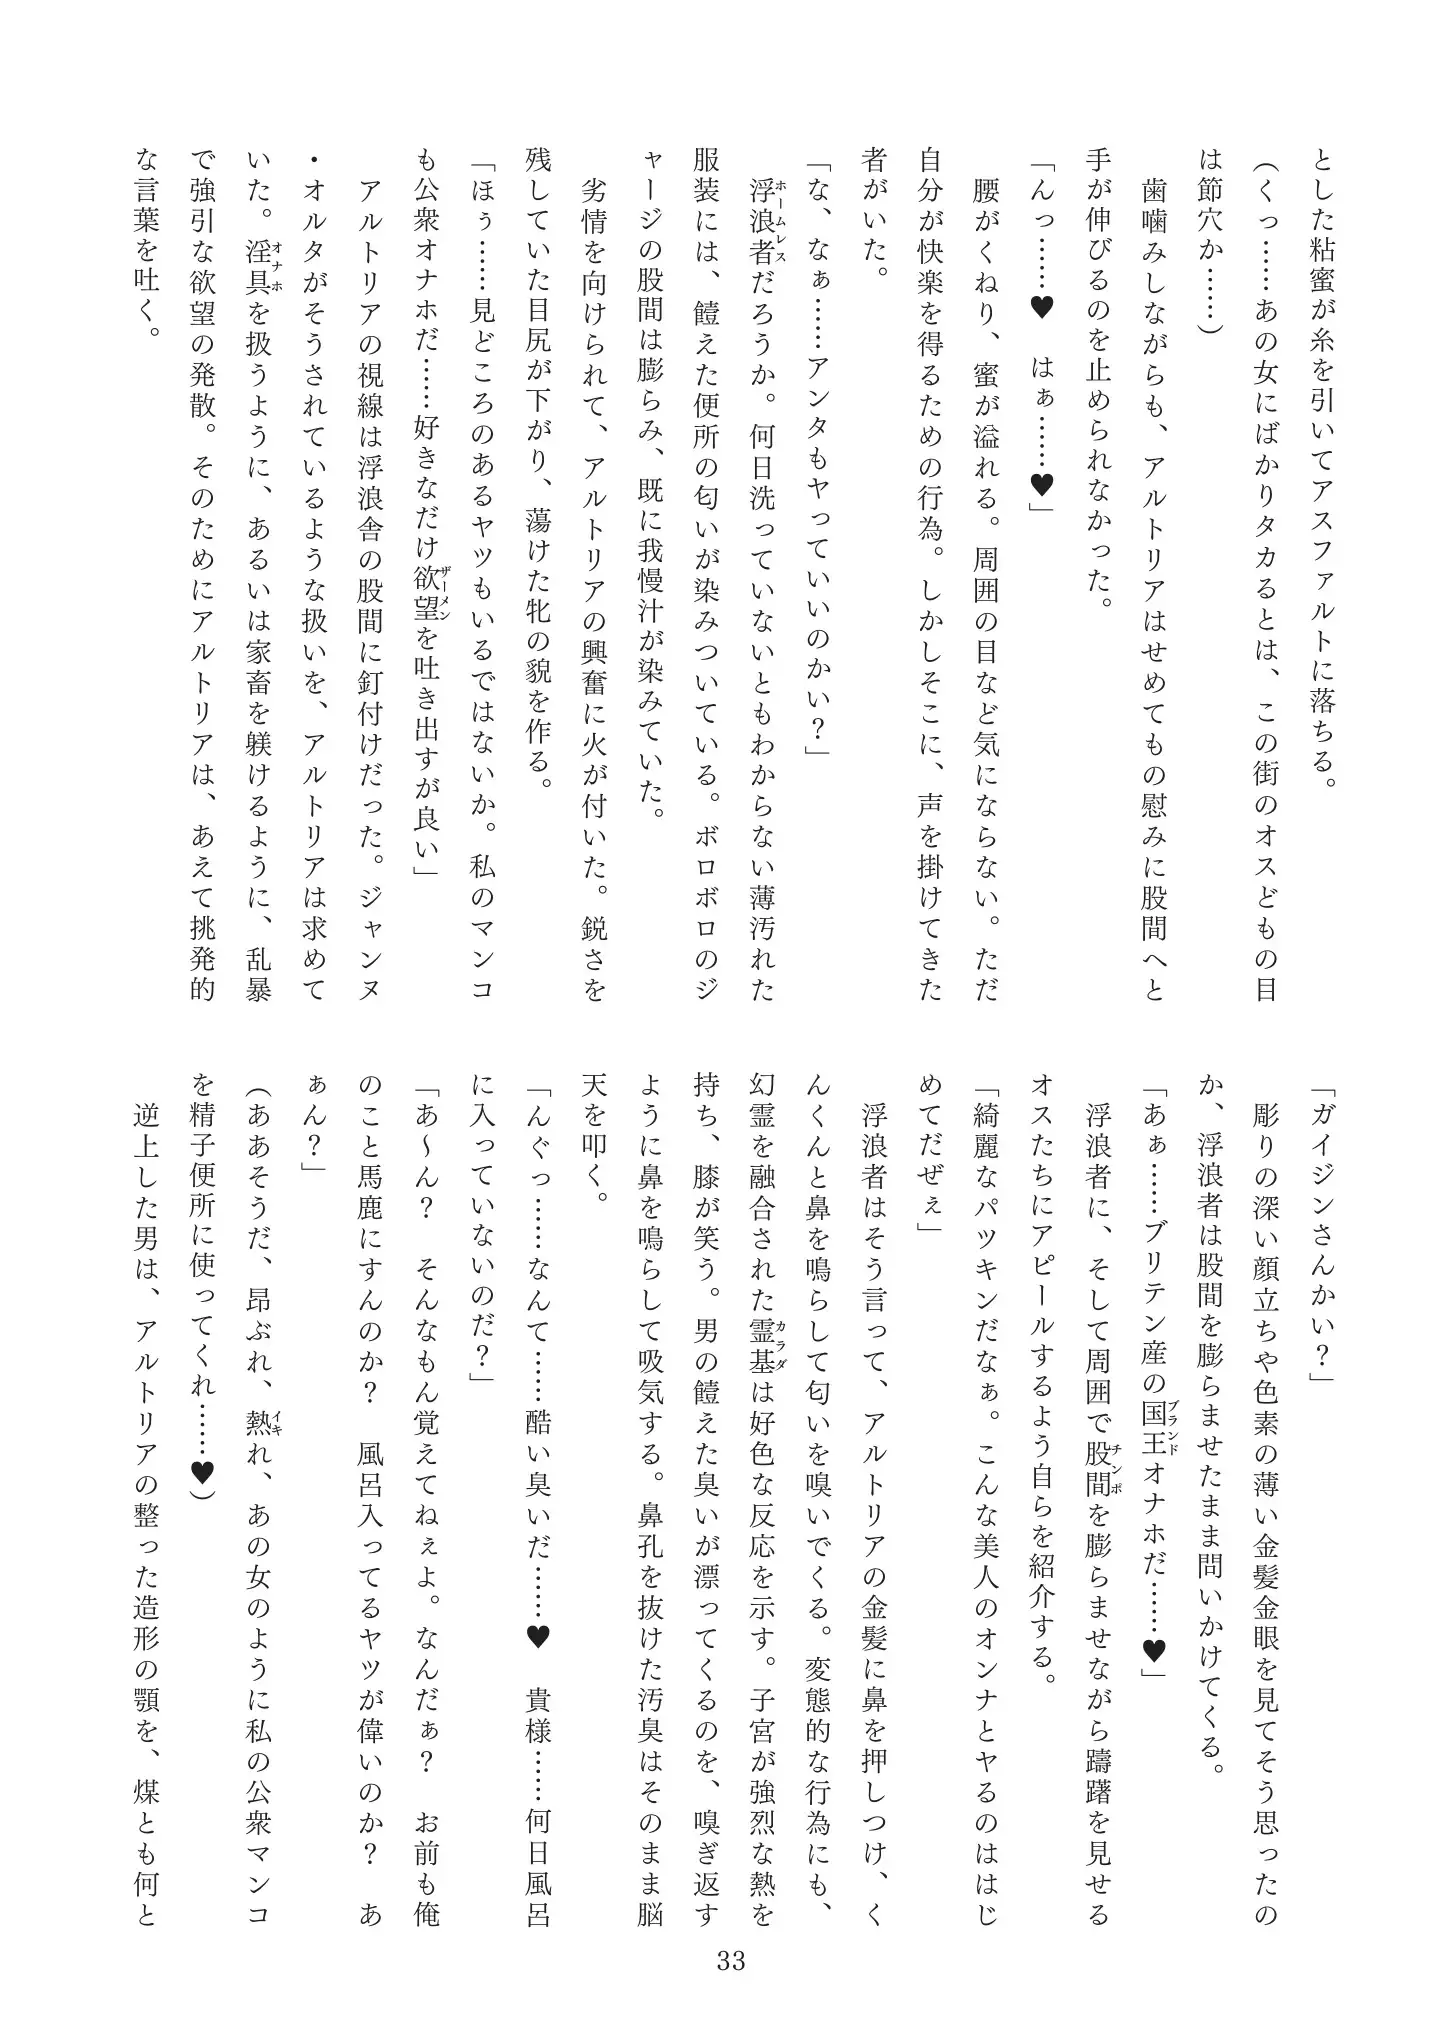 とした粘蜜が糸を引いてアスファルトに落ちる。
（くっ……あの女にばかりタカるとは、この街のオスどもの目
は節穴か……）
　歯噛みしながらも、アルトリアはせめてもの慰みに股間へと
手が伸びるのを止められなかった。
「んっ……♥　はぁ……♥」
　腰がくねり、蜜が溢れる。周囲の目など気にならない。ただ
自分が快楽を得るための行為。しかしそこに、声を掛けてきた
者がいた。
「な、なぁ……アンタもヤっていいのかい？」
　浮浪者ホームレスだろうか。何日洗っていないともわからない薄汚れた
服装には、饐えた便所の匂いが染みついている。ボロボロのジ
ャージの股間は膨らみ、既に我慢汁が染みていた。
　劣情を向けられて、アルトリアの興奮に火が付いた。鋭さを
残していた目尻が下がり、蕩けた牝の貌を作る。
「ほぅ……見どころのあるヤツもいるではないか。私のマンコ
も公衆オナホだ……好きなだけ欲望ザーメンを吐き出すが良い」
　アルトリアの視線は浮浪舎の股間に釘付けだった。ジャンヌ
・オルタがそうされているような扱いを、アルトリアは求めて
いた。淫具オナホを扱うように、あるいは家畜を躾けるように、乱暴
で強引な欲望の発散。そのためにアルトリアは、あえて挑発的
な言葉を吐く。
「ガイジンさんかい？」
　彫りの深い顔立ちや色素の薄い金髪金眼を見てそう思ったの
か、浮浪者は股間を膨らませたまま問いかけてくる。
「あぁ……ブリテン産の国王ブランドオナホだ……♥」
　浮浪者に、そして周囲で股間チンポを膨らませながら躊躇を見せる
オスたちにアピールするよう自らを紹介する。
「綺麗なパツキンだなぁ。こんな美人のオンナとヤるのははじ
めてだぜぇ」
　浮浪者はそう言って、アルトリアの金髪に鼻を押しつけ、く
んくんと鼻を鳴らして匂いを嗅いでくる。変態的な行為にも、
幻霊を融合された霊基カラダは好色な反応を示す。子宮が強烈な熱を
持ち、膝が笑う。男の饐えた臭いが漂ってくるのを、嗅ぎ返す
ように鼻を鳴らして吸気する。鼻孔を抜けた汚臭はそのまま脳
天を叩く。
「んぐっ……なんて……酷い臭いだ……♥　貴様……何日風呂
に入っていないのだ？」
「あ～ん？　そんなもん覚えてねぇよ。なんだぁ？　お前も俺
のこと馬鹿にすんのか？　風呂入ってるヤツが偉いのか？　あ
ぁん？」
（ああそうだ、昂ぶれ、熱イキれ、あの女のように私の公衆マンコ
を精子便所に使ってくれ……♥）
　逆上した男は、アルトリアの整った造形の顎を、煤とも何と
33